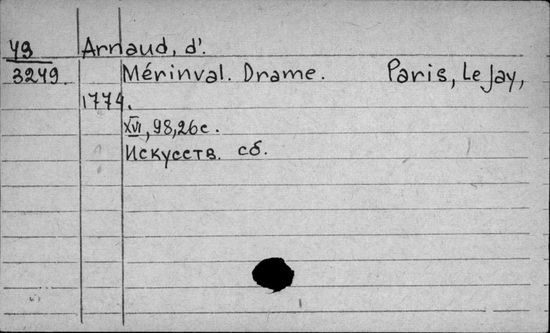 49 Arnaud, d'.
3249. Mérinval. Drame. Paris, Le Jay,
1774.
XVI, 98, 26 с.
Искусств. сб.